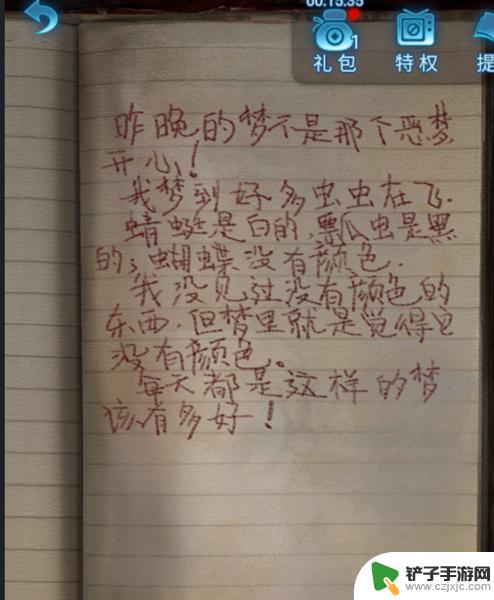 00:15:35
1
礼包
特权
提
昨晚的梦不是那个恶梦
开心！
我梦到好多虫虫在飞.
蜻蜓是白的,瓢虫是黑
的；蝴蝶没有颜色.
我没见过没有颜色的
东西.但梦里就是觉得它
没有颜色。
每天都是这样的梦
该有多好！
铲子手游网
www.czjxjc.com